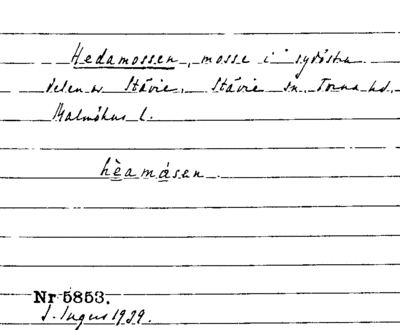 Hedamossen, mosse i sydöstra
delen av Stävie, Stävie sn. Torna hd.
Malmöhus l.
hèamåsen.
Nr 5853.
S. Ingers 1929.